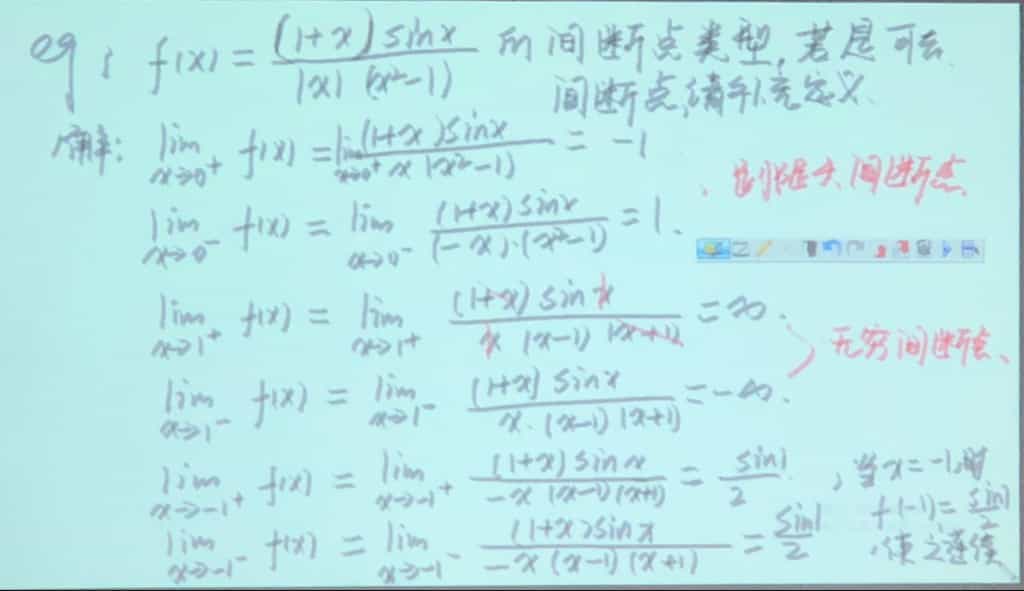 eg: f(x) = \frac{(1+x)sinx}{|x|(x²-1)} 的间断点类型,若是可去
间断点,请补充定义.
解: lim_{x→0⁺} f(x) = lim_{x→0⁺} \frac{(1+x)sinx}{x(x²-1)} = -1
跳跃 间断点
lim_{x→0⁻} f(x) = lim_{x→0⁻} \frac{(1+x)sinx}{(-x)·(x²-1)} = 1.
lim_{x→1⁺} f(x) = lim_{x→1⁺} \frac{(1+x)sinx}{x(x-1)(x+1)} = ∞.
无穷间断点、
lim_{x→1⁻} f(x) = lim_{x→1⁻} \frac{(1+x)sinx}{x·(x-1)(x+1)} = -∞.
lim_{x→-1⁺} f(x) = lim_{x→-1⁺} \frac{(1+x)sinx}{-x(x-1)(x+1)} = \frac{sin1}{2} ,当x=-1时
f(-1)=\frac{sin1}{2}
lim_{x→-1⁻} f(x) = lim_{x→-1⁻} \frac{(1+x)sinx}{-x(x-1)(x+1)} = \frac{sin1}{2} ,使之连续